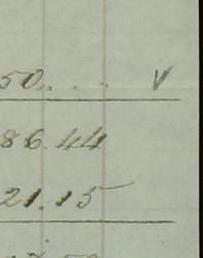 50. . . V
86.44
21.15